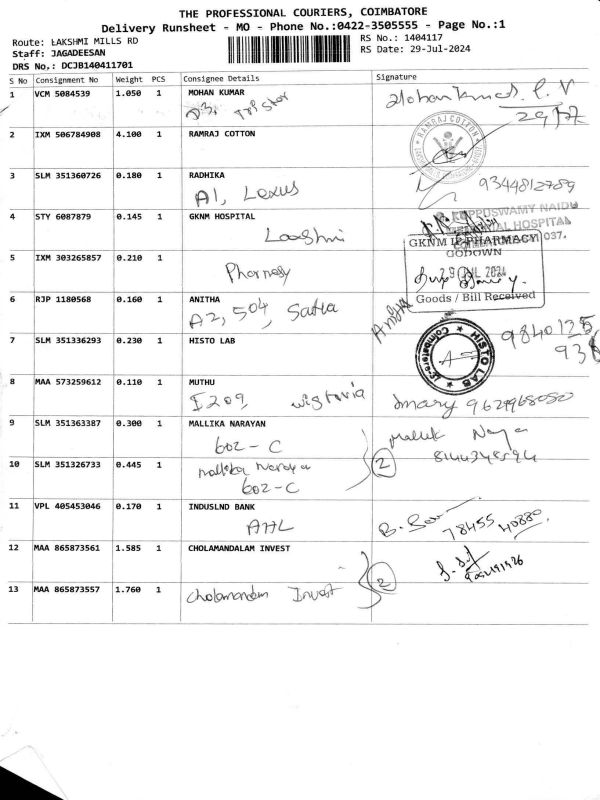 THE PROFESSIONAL COURIERS, COIMBATORE
Delivery Runsheet - MO - Phone No.:0422-3505555 - Page No.:1
Route: LAKSHMI MILLS RD
Staff: JAGADEESAN
DRS No.: DCJB140411701
RS No.: 1404117
RS Date: 29-Jul-2024
S No Consignment No Weight PCS Consignee Details Signature
1 VCM 5084539 1.050 1 MOHAN KUMAR
D3, Tristar
Mohan Kumar. C. V
29/7
2 IXM 506784908 4.100 1 RAMRAJ COTTON
RAMRAJ COTTON
3 SLM 351360726 0.180 1 RADHIKA
A1, Lexus
9344812789
4 STY 6087879 0.145 1 GKNM HOSPITAL
Lakshmi
KUPPUSWAMY NAIDU
HOSPITAL
037.
5 IXM 303265857 0.210 1
Pharmacy
GKNM IP PHARMACY
GODOWN
29 JUL 2024
Goods / Bill Received
6 RJP 1180568 0.160 1 ANITHA
A2, 504, Satha
Anitha
7 SLM 351336293 0.230 1 HISTO LAB
HISTO LAB
Coimbatore
9840125
938
8 MAA 573259612 0.110 1 MUTHU
I209 wistoria
9 SLM 351363387 0.300 1 MALLIKA NARAYAN
602-C
10 SLM 351326733 0.445 1
Mallika Naraya
602-C
2
11 VPL 405453046 0.170 1 INDUSLND BANK
AHL
78455 40880
12 MAA 865873561 1.585 1 CHOLAMANDALAM INVEST
2
13 MAA 865873557 1.760 1
Cholamandam Invest